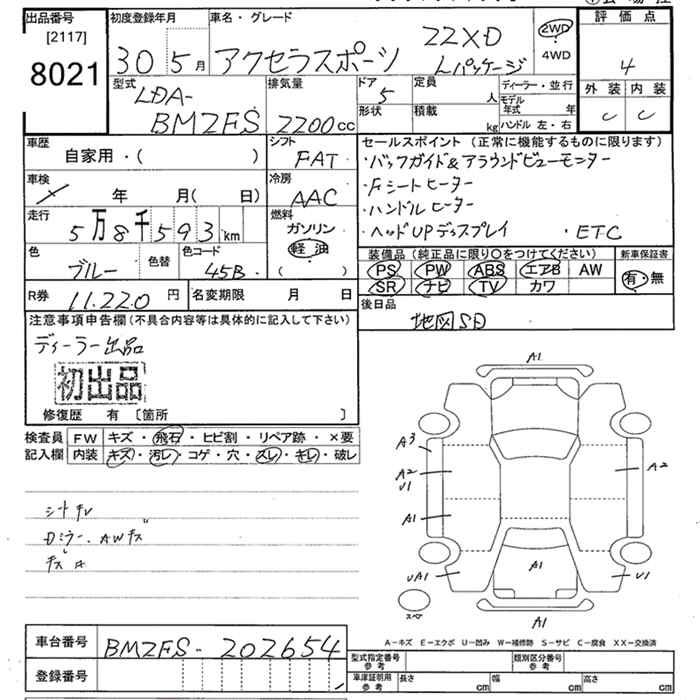 出品番号 初度登録年月 車名・グレード 評価点
[2117]
8021
30 5月 アクセラスポーツ 22XD Lパッケージ
2WD
4WD
4
型式 LDA-BM2FS
排気量 2200cc
ドア 5
形状
定員 人
積載 kg
ディーラー・並行
モデル年式 年
ハンドル 左・右
外装 内装
C C
車歴 自家用・( )
シフト FAT
車検 年 月( 日)
冷房 AAC
走行 5万8千593km
燃料 ガソリン
軽油
( )
色 ブルー 色替 色コード 45B
R券 11.220円 名変期限 月 日
セールスポイント (正常に機能するものに限ります)
・バックガイド&アラウンドビューモニター
・Fシートヒーター
・ハンドルヒーター
・ヘッドUPディスプレイ ・ETC
装備品 (純正品に限り○をつけてください) 新車保証書
PS PW ABS エアB AW
SR ナビ TV カワ
有・無
後日品
地図SD
注意事項申告欄(不具合内容等は具体的に記入して下さい)
ディーラー出品
初出品
修復歴 有 〔箇所 〕
検査員 FW キズ・飛石・ヒビ割・リペア跡・×要
記入欄 内装 キズ・汚レ・コゲ・穴・スレ・キレ・破レ
シートキレ
Dミラー、AWキズ
A1
A3
A2
U1
A2
A1
UA1
A1
U1
スペア
A1
A-キズ E-エクボ U-凹み W-補修跡 S-サビ C-腐食 XX-交換済
車台番号 BM2FS-202654
登録番号
型式指定番号 参考 類別区分番号 参考
車庫証明用 参考 長さ cm 幅 cm 高さ cm